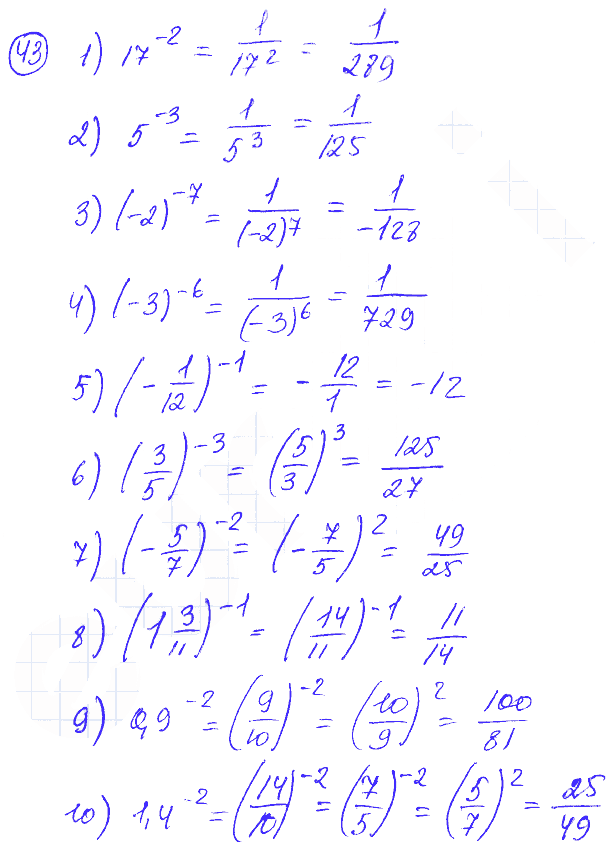 43 1) 17^-2 = 1/17^2 = 1/289
2) 5^-3 = 1/5^3 = 1/125
3) (-2)^-7 = 1/(-2)^7 = 1/-128
4) (-3)^-6 = 1/(-3)^6 = 1/729
5) (-1/12)^-1 = -12/1 = -12
6) (3/5)^-3 = (5/3)^3 = 125/27
7) (-5/7)^-2 = (-7/5)^2 = 49/25
8) (1 3/11)^-1 = (14/11)^-1 = 11/14
9) 0,9^-2 = (9/10)^-2 = (10/9)^2 = 100/81
10) 1,4^-2 = (14/10)^-2 = (7/5)^-2 = (5/7)^2 = 25/49